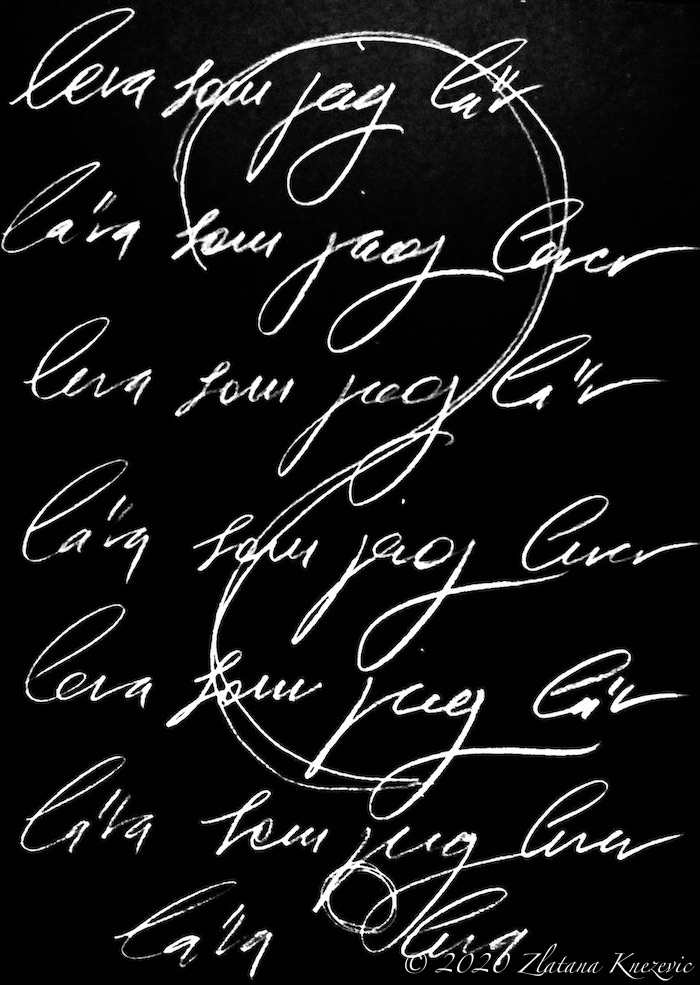 leva som jag lär
lära som jag lever
leva som jag lär
lära som jag lever
leva som jag lär
lära som jag lever
lära leva
© 2020 Zlatana Knezevic